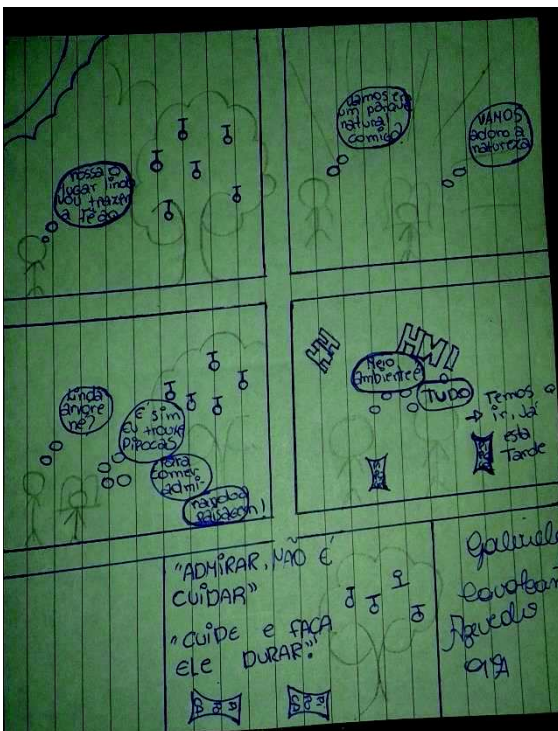 Nossa q
lugar lindo
vou trazer
a Téo
Vamos em
um parque
natural
comigo?
VAMOS
adoro a
natureza
Linda
árvore
né?
É sim
eu trouxe
pipocas
Para
comer
admi
rando a
paisagem!
HM
HMM
Meio
ambiente é
TUDO
Temos q
ir, já
esta
Tarde
"ADMIRAR, NÃO É
CUIDAR"
"CUIDE E FAÇA
ELE DURAR."
PI
PO
CA
PI
PO
CA
Azevedo
9ºA